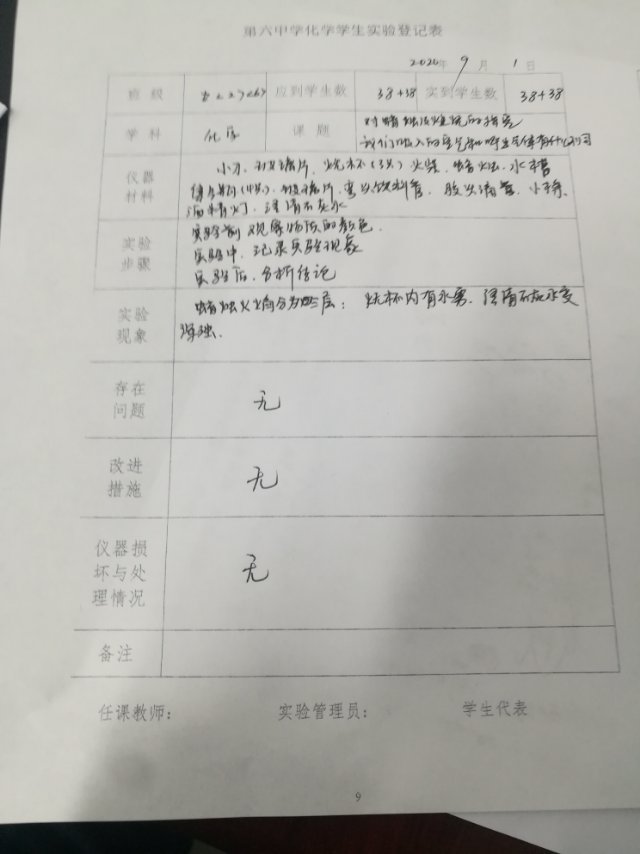 第六中学化学学生实验登记表
2020年 9月 1日
班级 应到学生数 38+38 实到学生数 38+38
学科 化学 课题 对蜡烛及燃烧的探究
我们吸入的空气和呼出的气体有什么不同
仪器材料 小刀、玻璃片、烧杯(3只)火柴、蜡烛、水槽
集气瓶(4只)、玻璃片、弯头饮料管、胶头滴管、
酒精灯、澄清石灰水
实验步骤 实验前 观察物质的颜色.
实验中、记录实验现象
实验后、分析结论
实验现象 蜡烛火焰分为三层; 烧杯内有水雾、澄清石灰水变
浑浊.
存在问题 无
改进措施 无
仪器损坏与处理情况 无
备注
任课教师: 实验管理员: 学生代表
9